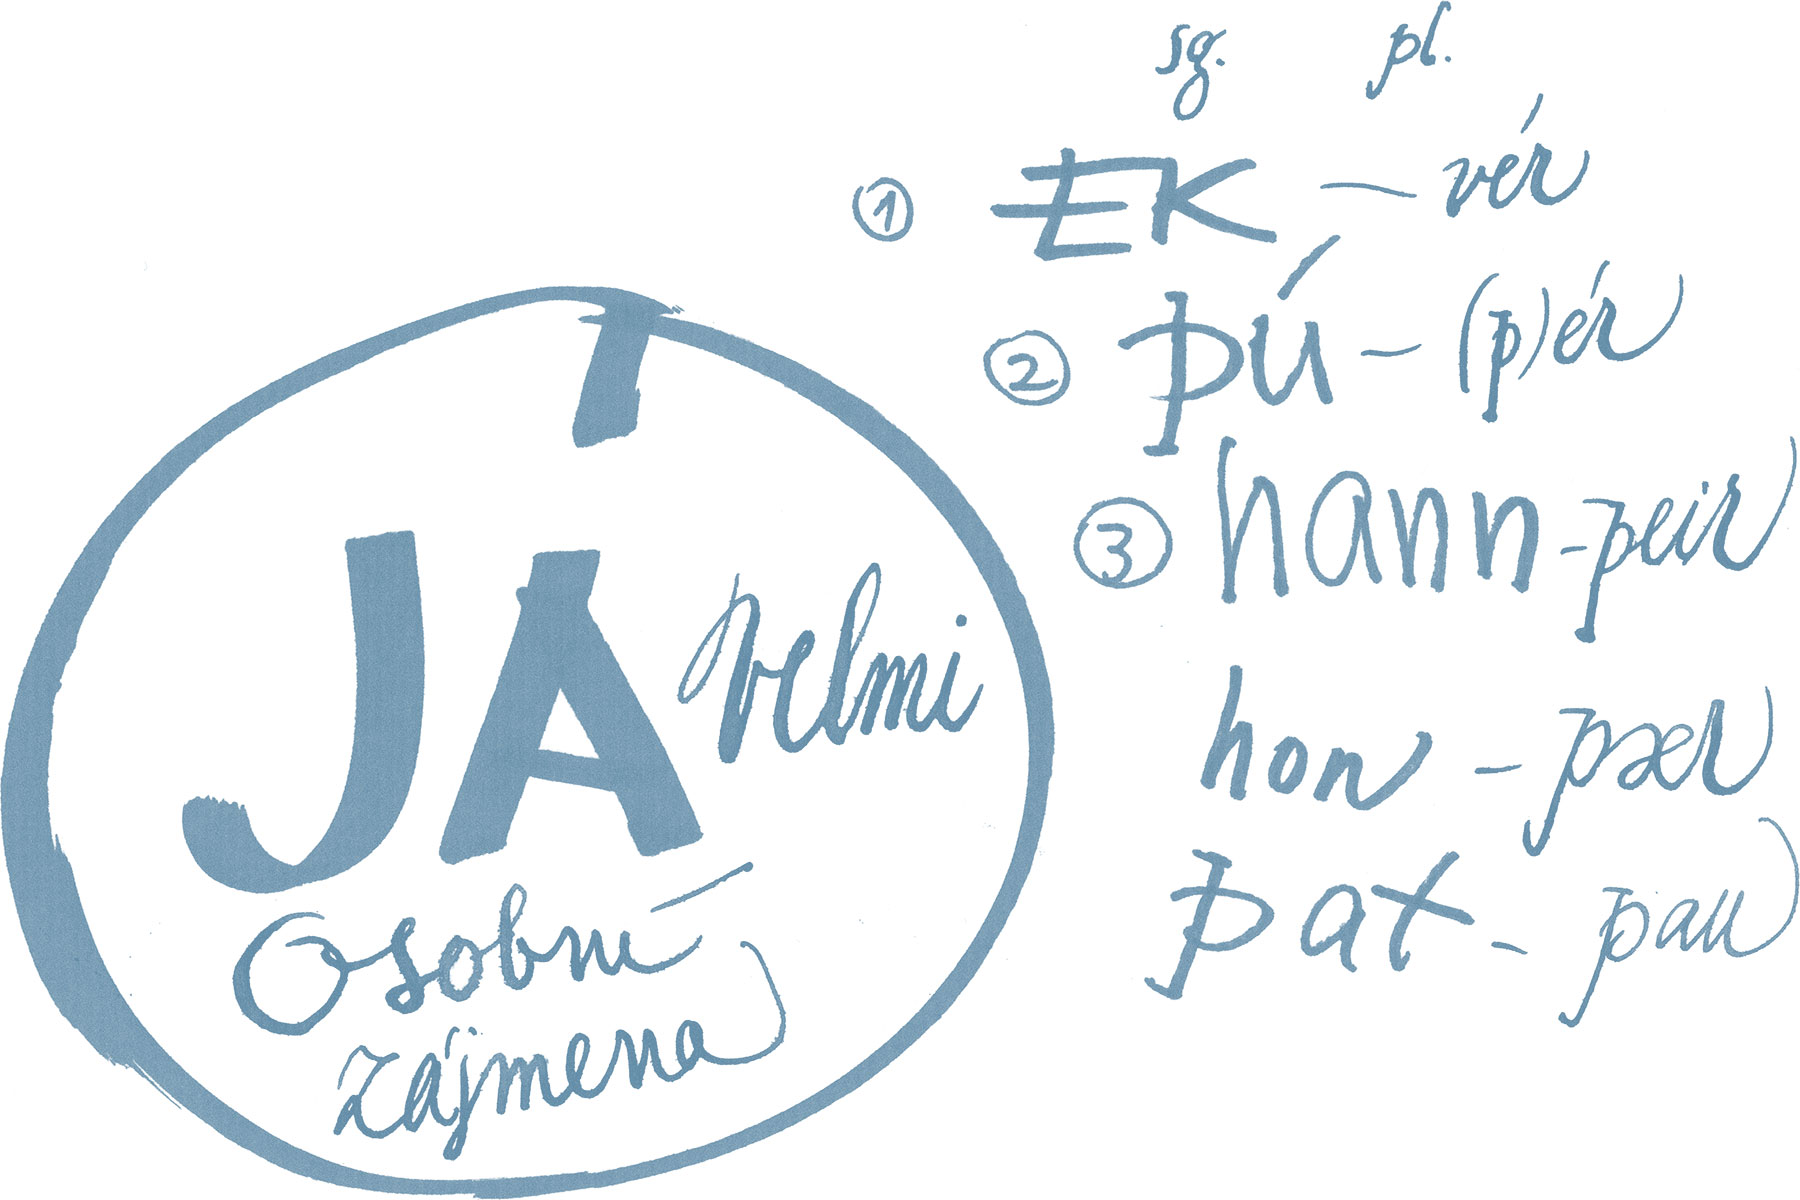 JÁ velmi
osobní
zájmena
sg. pl.
① EK – vér
② þú – (þ)ér
③ hann – þeir
hon – þær
þat – þau